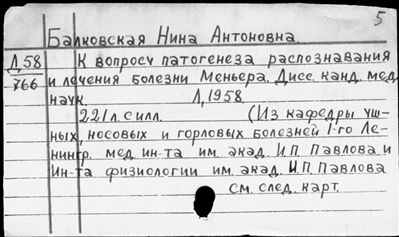 5
Балковская Нина Антоновна.
Л,58 К вопросу патогенеза распознавания
766 и лечения болезни Меньера. Дисс. канд. мед.
наук. Л,1958.
221л. с илл. (Из кафедры уш-
ных, носовых и горловых болезней 1-го Ле-
нингр. мед. ин-та им. акад. И.П. Павлова и
Ин-та физиологии им. акад. И.П. Павлова
см. след. карт.